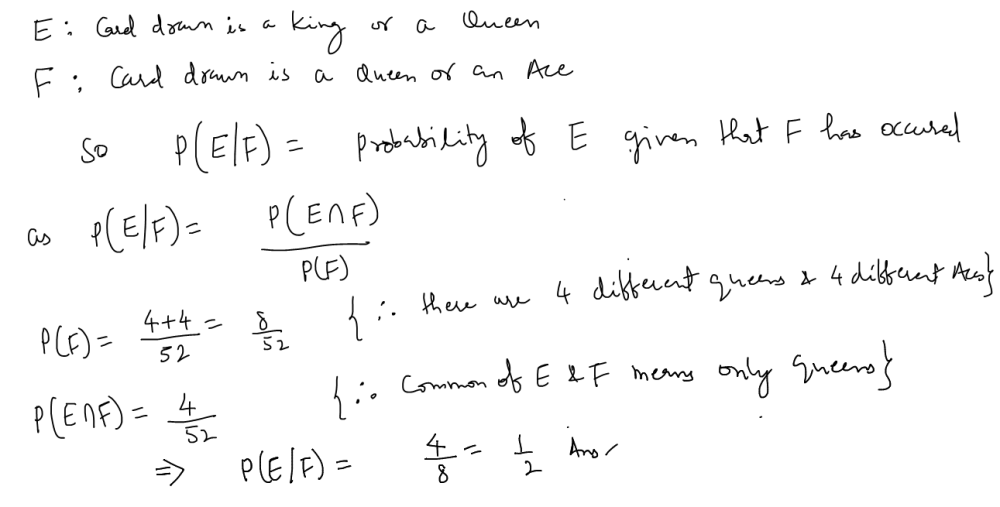 E : Card drawn is a King or a Queen
F : Card drawn is a Queen or an Ace
So P(E/F) = probability of E given that F has occured
as P(E/F) = P(E∩F) / P(F)
P(F) = (4+4)/52 = 8/52 {∴ there are 4 different queens & 4 different Aces}
P(E∩F) = 4/52 {∴ Common of E & F means only queens}
⇒ P(E/F) = 4/8 = 1/2 Ans